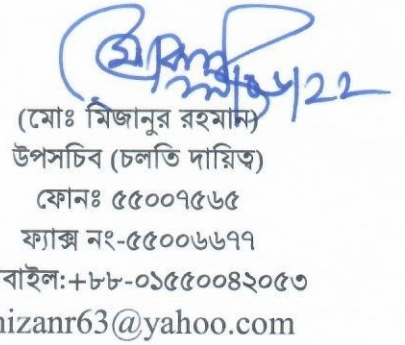 (মোঃ মিজানুর রহমান)
উপসচিব (চলতি দায়িত্ব)
ফোনঃ ৫৫০০৭৫৬৫
ফ্যাক্স নং-৫৫০০৬৬৭৭
বাইল:+৮৮-০১৫৫০০৪২০৫৩
nizanr63@yahoo.com